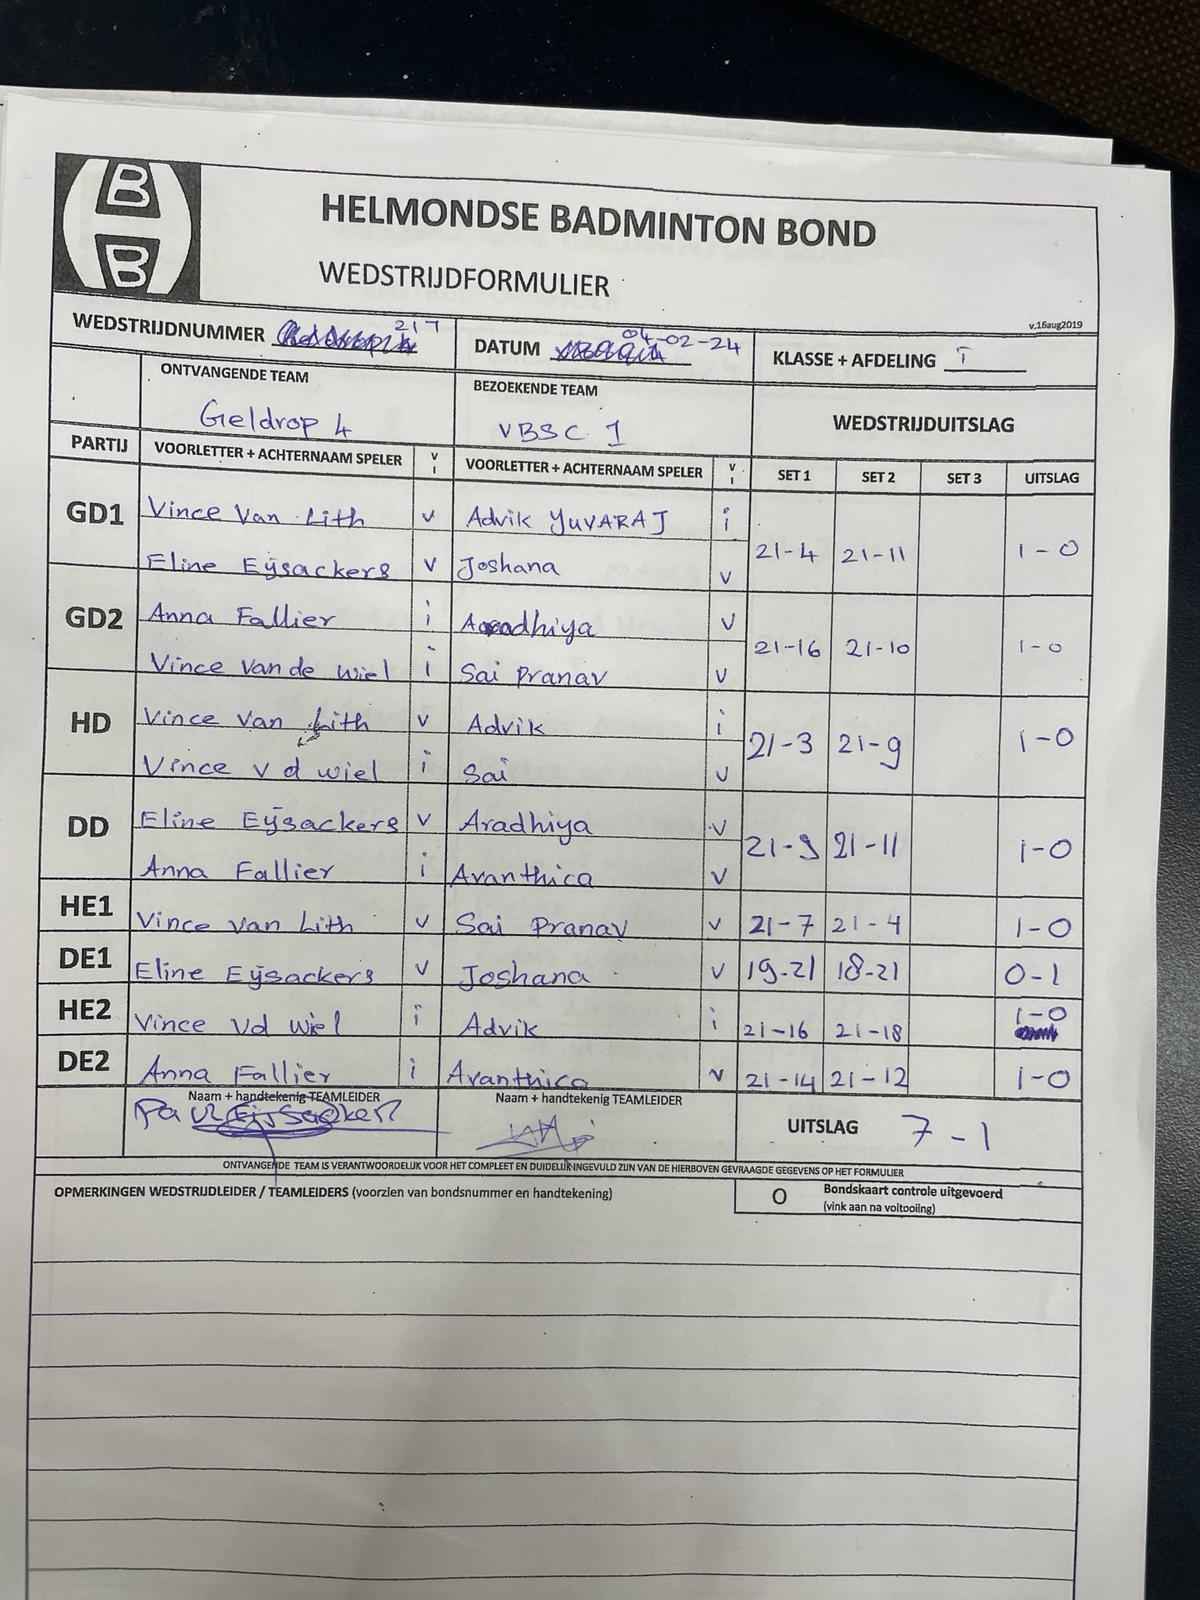 B
B
HELMONDSE BADMINTON BOND
WEDSTRIJDFORMULIER
v.16aug2019
WEDSTRIJDNUMMER 217 DATUM 04-02-24 KLASSE + AFDELING I
ONTVANGENDE TEAM BEZOEKENDE TEAM WEDSTRIJDUITSLAG
Geldrop 4 VBSC 1
PARTIJ VOORLETTER + ACHTERNAAM SPELER V I VOORLETTER + ACHTERNAAM SPELER V I SET 1 SET 2 SET 3 UITSLAG
GD1 Vince Van Lith v Advik YUVARAJ i 21-4 21-11 1-0
Eline Eijsackers v Joshana v
GD2 Anna Fallier i Aradhiya v 21-16 21-10 1-0
Vince Van de Wiel i Sai Pranav v
HD Vince Van Lith v Advik i 21-3 21-9 1-0
Vince v d wiel i Sai v
DD Eline Eijsackers v Aradhiya v 21-9 21-11 1-0
Anna Fallier i Avanthica v
HE1 Vince Van Lith v Sai Pranav v 21-7 21-4 1-0
DE1 Eline Eijsackers v Joshana v 19-21 18-21 0-1
HE2 Vince vd wiel i Advik i 21-16 21-18 1-0
DE2 Anna Fallier i Avanthica v 21-14 21-12 1-0
Naam + handtekenig TEAMLEIDER Naam + handtekenig TEAMLEIDER UITSLAG 7-1
ONTVANGENDE TEAM IS VERANTWOORDELIJK VOOR HET COMPLEET EN DUIDELIJK INGEVULD ZIJN VAN DE HIERBOVEN GEVRAAGDE GEGEVENS OP HET FORMULIER
OPMERKINGEN WEDSTRIJDLEIDER / TEAMLEIDERS (voorzien van bondsnummer en handtekening) O Bondskaart controle uitgevoerd
(vink aan na voltooiing)